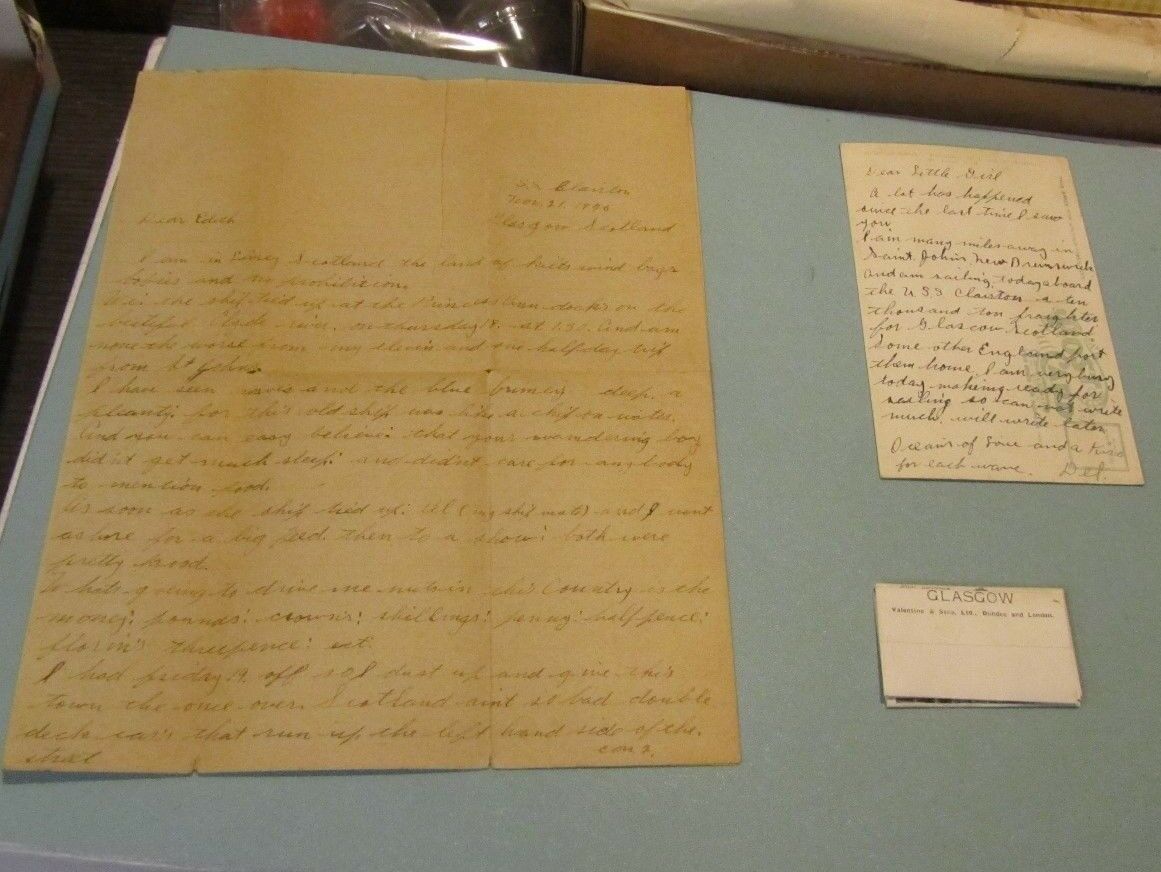 SS Clairton
21. 1926
Glasgow Scotland
Dear Edith
I am in Scotland the land of kilts wind bags
and no prohibition
the ship tied up at the Princess dock's on the
Clyde river, on thursday 18. at 1.30. And am
none the worse from my eleven and one half day trip
from St John.
I have seen waves and the blue briney deep a
pleanty; for this old ship was like a chip on water.
And you can easy believe: that your wandering boy
didn't get much sleep: and didn't care for anybody
to mention food.
As soon as the ship tied up: Al (my ship mate) and I went
ashore for a big feed. then to a show: both were
pretty good.
Whats going to drive me nuts in this Country is the
money: pounds: crown's: shillings: penny: half pence:
florin's threepence: ect.
I had friday 19. off so I dust up and give this
town the once over. Scotland aint so bad double
deck car's that run up the left hand side of the.
street
con 2.
Dear Little Girl
A lot has happened
since the last time I saw
you
I am many miles away in
Saint. John's New Brunswick
and am sailing, today aboard
the U.S.S Clairton a ten
thousand ton fraighter
for Glascow, Scotland
Some other England port
then home. I am very busy
today making ready for
sailing so can not write
much, will write later
Oceans of Love and a Kiss
for each wave. Del.
GLASGOW
Valentine & Sons, Ltd., Dundee and London.